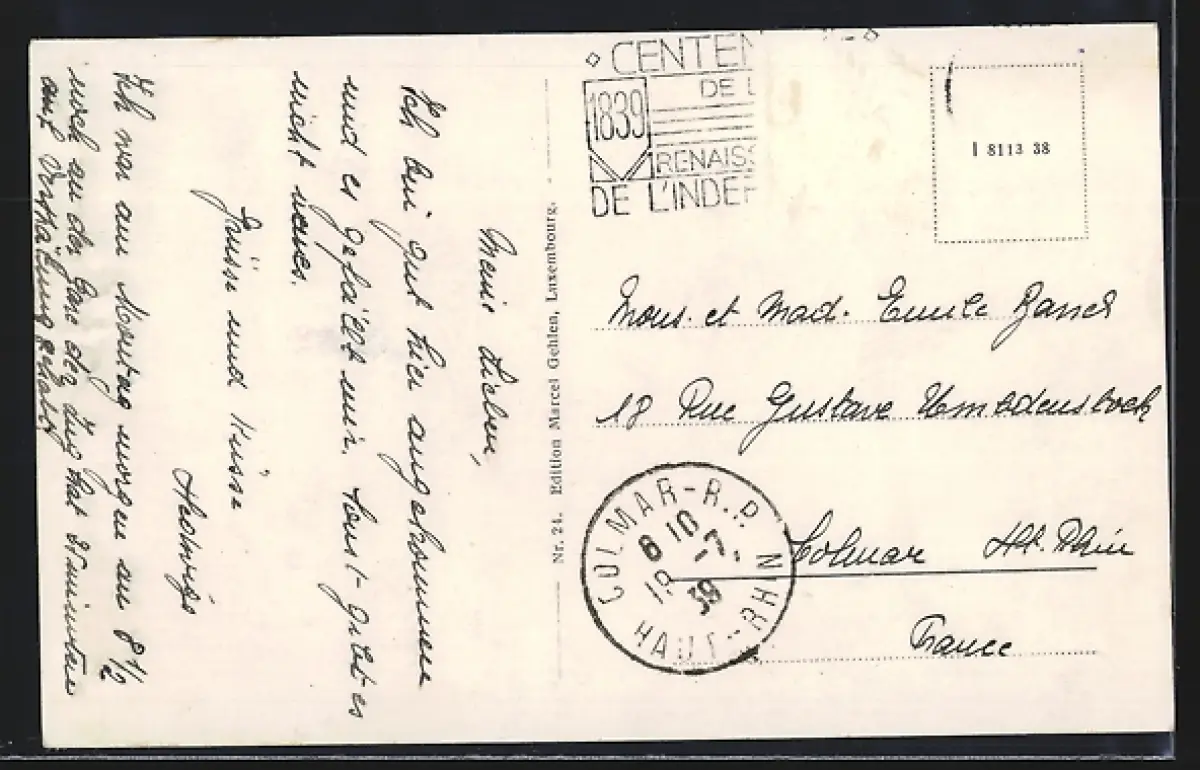 Meine Lieben,
Ich bin gut hier angekommen
und es gefällt mir. Sonst gibt es
nicht neues.
Grüsse und Küsse
Ich war am Montag morgen um 8 1/2
noch an der Gare der Zug hat 35 minuten
amt Verspätung gehabt
Nr. 24. Edition Marcel Gehlen, Luxembourg.
CENTEN
DE L
1839
RENAISS
DE L'INDEP
I 8113 38
Mons. et Mad. Emile
18 Rue Gustave Umbdenstock
Colmar Ht. Rhin
France
COLMAR - R.P.
6 10
19 -7- 39
HAUT-RHIN